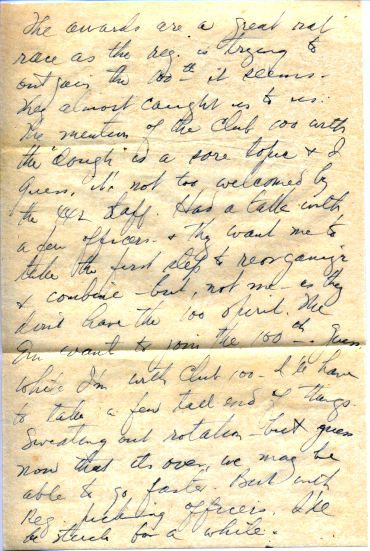 The awards are a great rat
race as the reg. is trying to
out gain the 100th it seems.
They almost caught us to us.
The mention of the Club 100 with
the "Dough" is a sore topic & I
guess, it's not too welcomed by
the 442 staff. Had a talk with
a few officers & they want me to
take the first step to reorganize
& combine - but, not me - as they
don't have the 100 spirit. The
want to join the 100th. Guess
while I'm with Club 100 - I'll have
to take a few tail end of things.
Sweating out rotation - but guess
now that its over, we may be
able to go faster. But with
Reg picking officers. I'll
be stuck for a while.